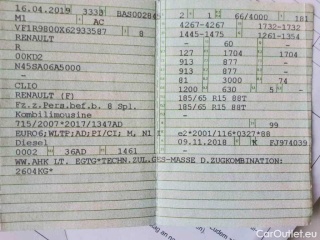 16.04.2019 3333 BAS00284
M1 AC
VF1R9800X62933587 8
RENAULT
R
00KD2
N45SA06A5000
-
CLIO
RENAULT (F)
Fz.z.Pers.bef.b. 8 Spl.
Kombilimousine
715/2007*2017/1347AD
EURO6;WLTP;AD;PI/CI; M, N1 I
Diesel
0002 36AD 1461
WW.AHK LT. EGTG*TECHN.ZUL.GES-MASSE D.ZUGKOMBINATION:
2604KG*
2 1 66/4000 181
4267-4267 1732-1732
1445-1475 1261-1354
- 60 -
127 1704 1704
913 877 -
913 877 -
81 3000 74
1200 630 5 -
185/65 R15 88T
185/65 R15 88T
-
- 99
e2*2001/116*0327*88
09.11.2018 K FJ974039
CarOutlet.eu